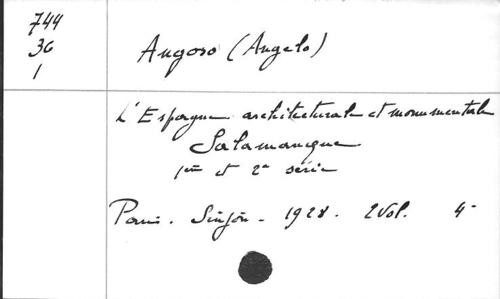 744
36
1
Angoso (Angelo)
L'Espagne architecturale et monumentale
Salamanque
1ère et 2e série
Paris. 1928. 2 Vol. 4-